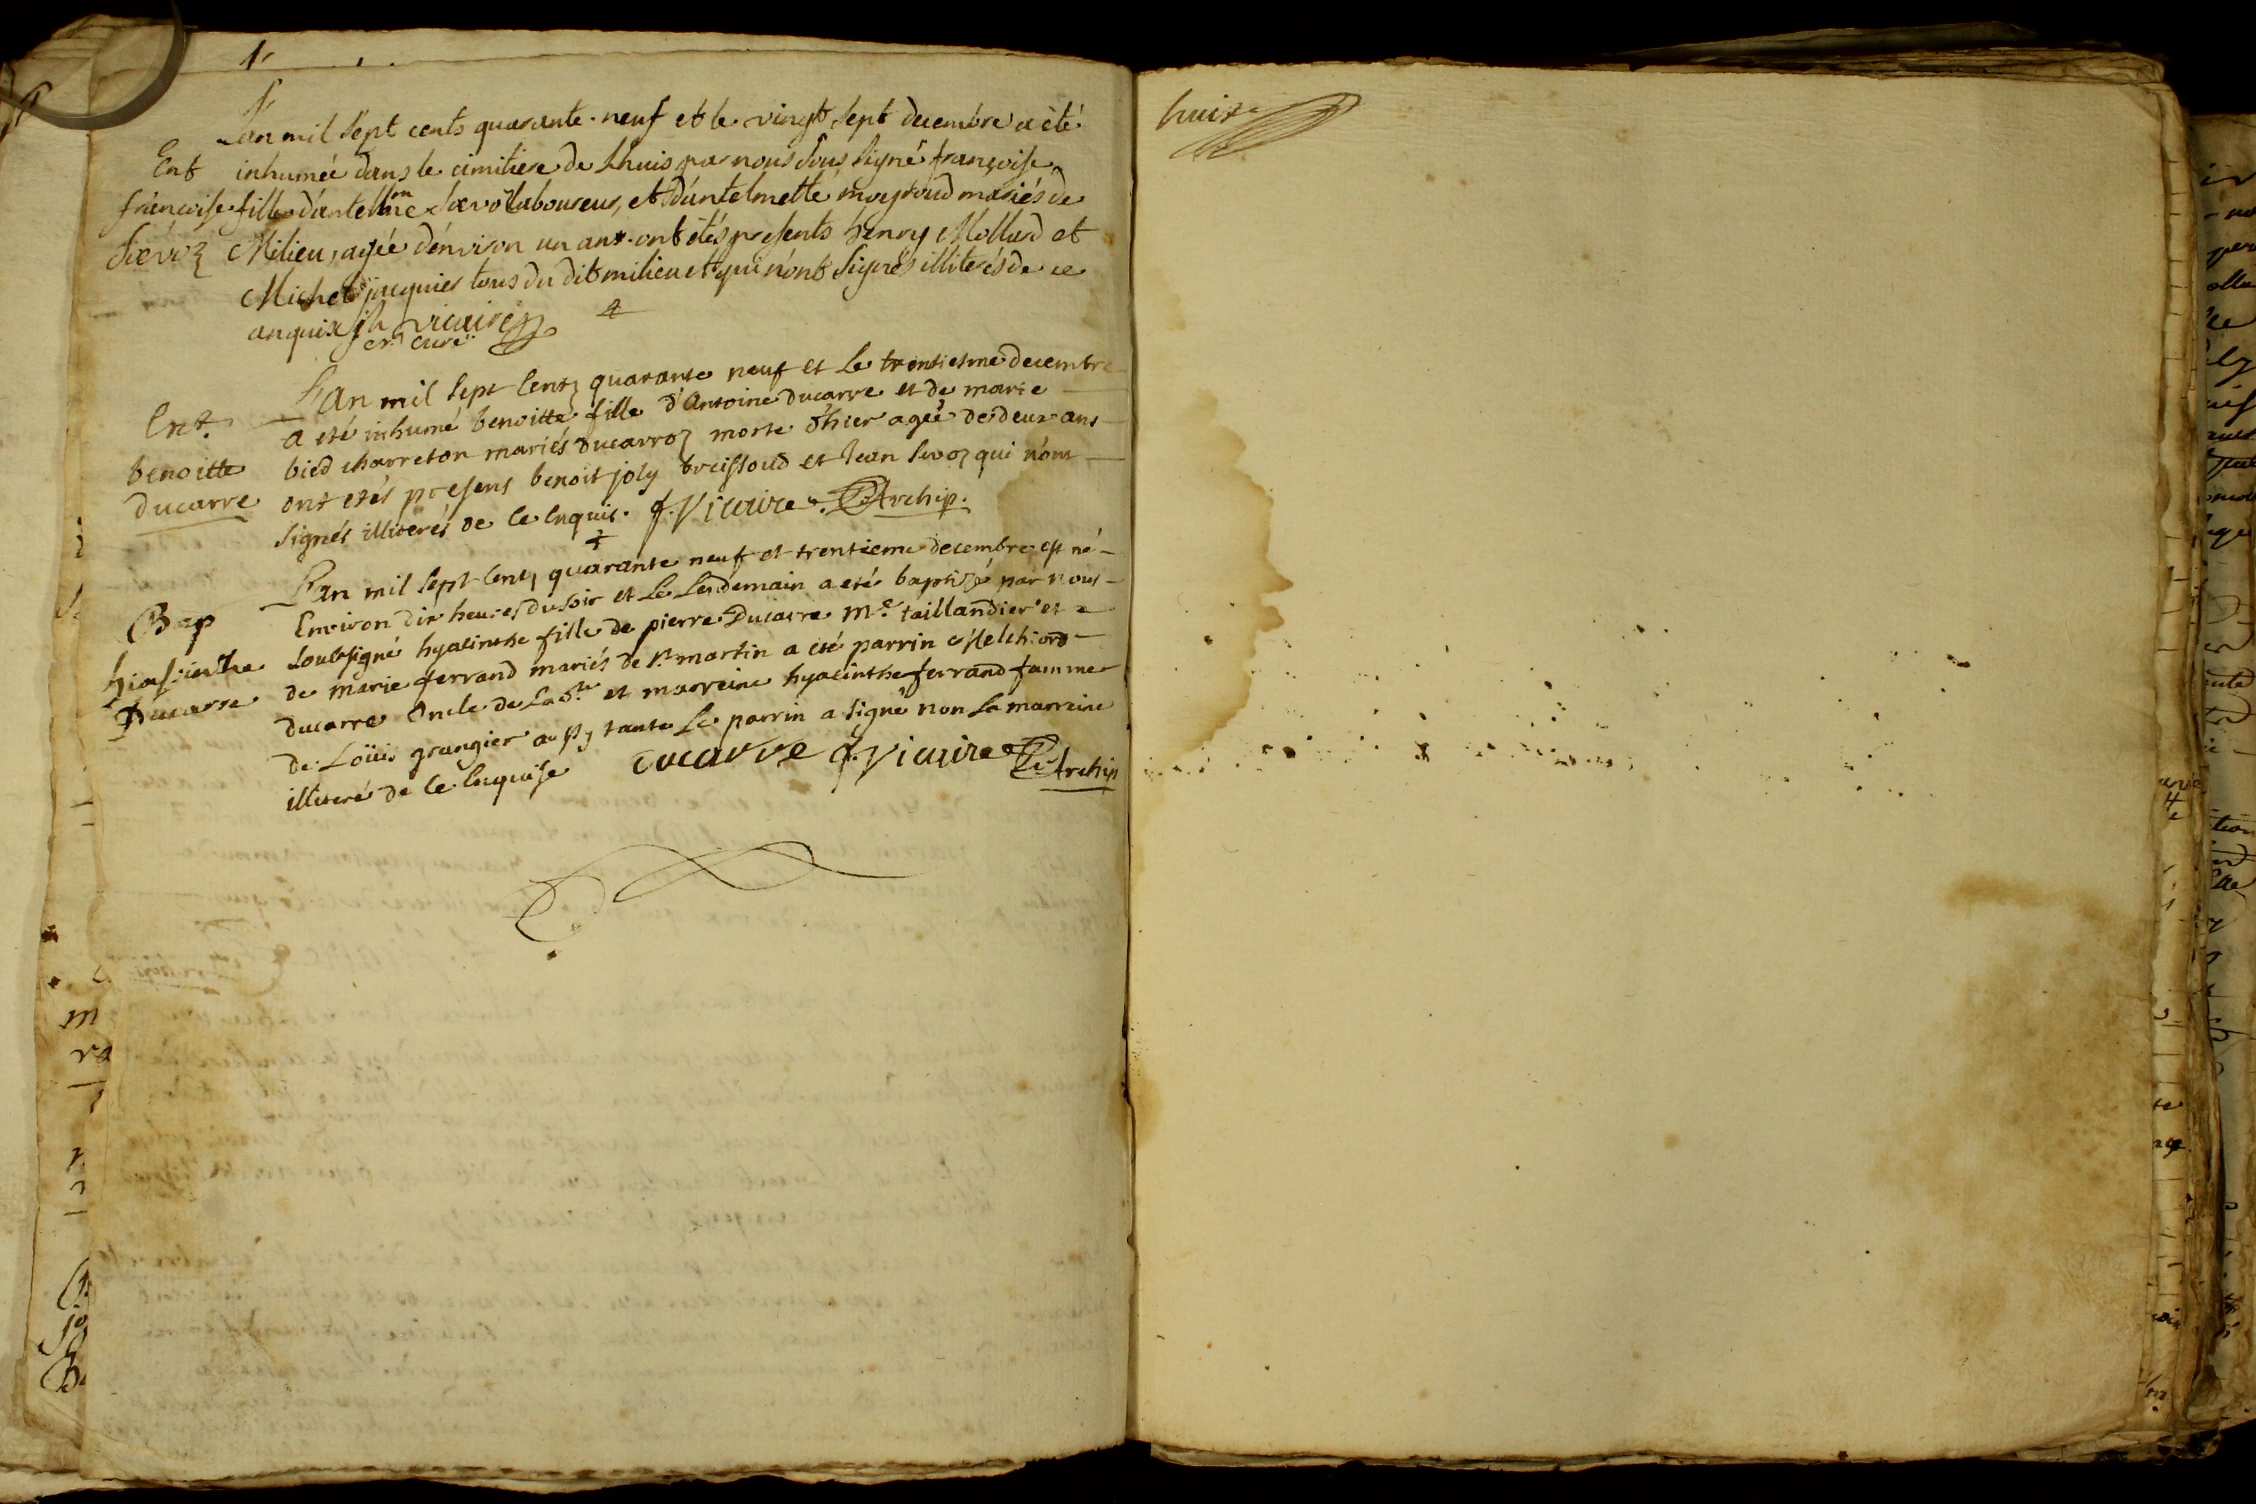 L'an mil sept cents quarante neuf et le vingt sept decembre a été
Ent
inhumée dans le cimitiere de Lhuis par nous sous signé françoise
françoise
fille d'antelme laboureur, et d'antelmette moyroud mariés de
Milieu, agée d'environ un an. ont étés presents henry Mollard et
Michel jacquier tous du dit milieu et qui n'ont signés illiterés de ce
enquis
vicaire
curé
L'an mil sept cents quarante neuf et le trentiesme decembre
Ent.
a eté inhumé benoitte fille d'Antoine ducarre et de marie
benoitte
bied charreton mariés ducarroz morte d'hier agée de deux ans
ducarre
ont etés presens benoit joly brissoud et Jean qui n'ont
signés illiterés de ce enquis. f. Vicaire. Archip.
L'an mil sept cents quarante neuf et trentieme decembre est né
Bap
Environ dix heures du soir et le lendemain a eté baptizé par nous
hiasinthe
soubsigné hyacinthe fille de pierre Ducarre me taillandier et
Ducarre
de marie ferrand mariés de st martin a eté parrin Melchiord
ducarre oncle de la et marreine hyacinthe ferrand famme
de Loüis grangier aussy tante le parrin a signé non la marreine
illiteré de ce enquise ducarre f. Vicaire Archip
huit